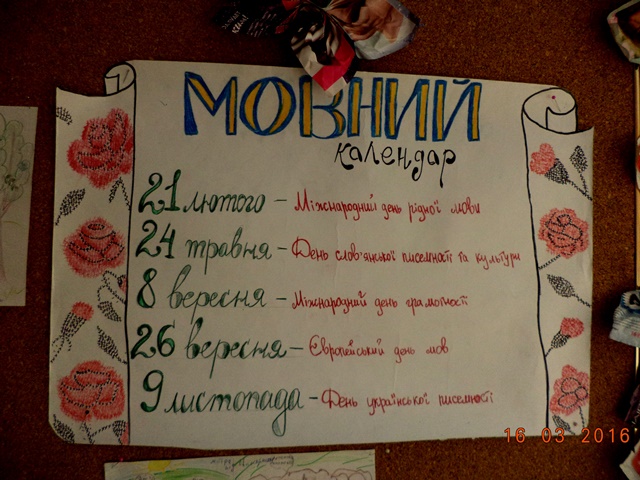 МОВНИЙ
календар
21 лютого – Міжнародний день рідної мови
24 травня – День слов'янської писемності та культури
8 вересня – Міжнародний день грамотності
26 вересня – Європейський день мов
9 листопада – День української писемності
16 03 2016